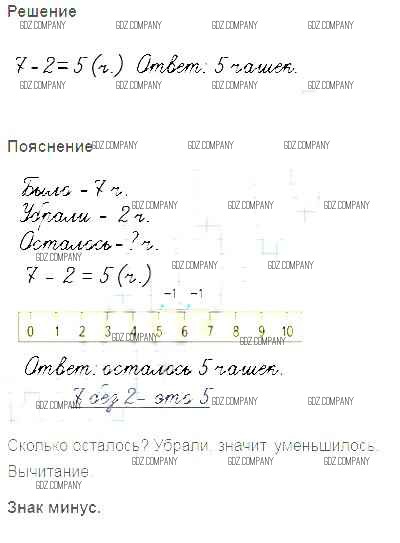 Решение
GDZ.COMPANY GDZ.COMPANY GDZ.COMPANY GDZ.COMPANY
7 - 2 = 5 (ч.) Ответ: 5 чашек.
GDZ.COMPANY GDZ.COMPANY GDZ.COMPANY GDZ.COMPANY
Пояснение GDZ.COMPANY GDZ.COMPANY GDZ.COMPANY
Было - 7 ч.
Убрали - 2 ч. GDZ.COMPANY GDZ.COMPANY
Осталось - ? ч. GDZ.COMPANY
GDZ.COMPANY GDZ.COMPANY
7 - 2 = 5 (ч.)
GDZ.COMPANY
−1 −1
0 1 2 3 4 5 6 7 8 9 10
GDZ.COMPANY GDZ.COMPANY
Ответ: осталось 5 чашек.
GDZ.COMPANY
7 без 2 - это 5
GDZ.COMPANY GDZ.COMPANY GDZ.COMPANY
Сколько осталось? Убрали, значит уменьшилось.
GDZ.COMPANY GDZ.COMPANY
Вычитание.
GDZ.COMPANY GDZ.COMPANY GDZ.COMPANY
Знак минус.
GDZ.COMPANY GDZ.COMPANY GDZ.COMPANY